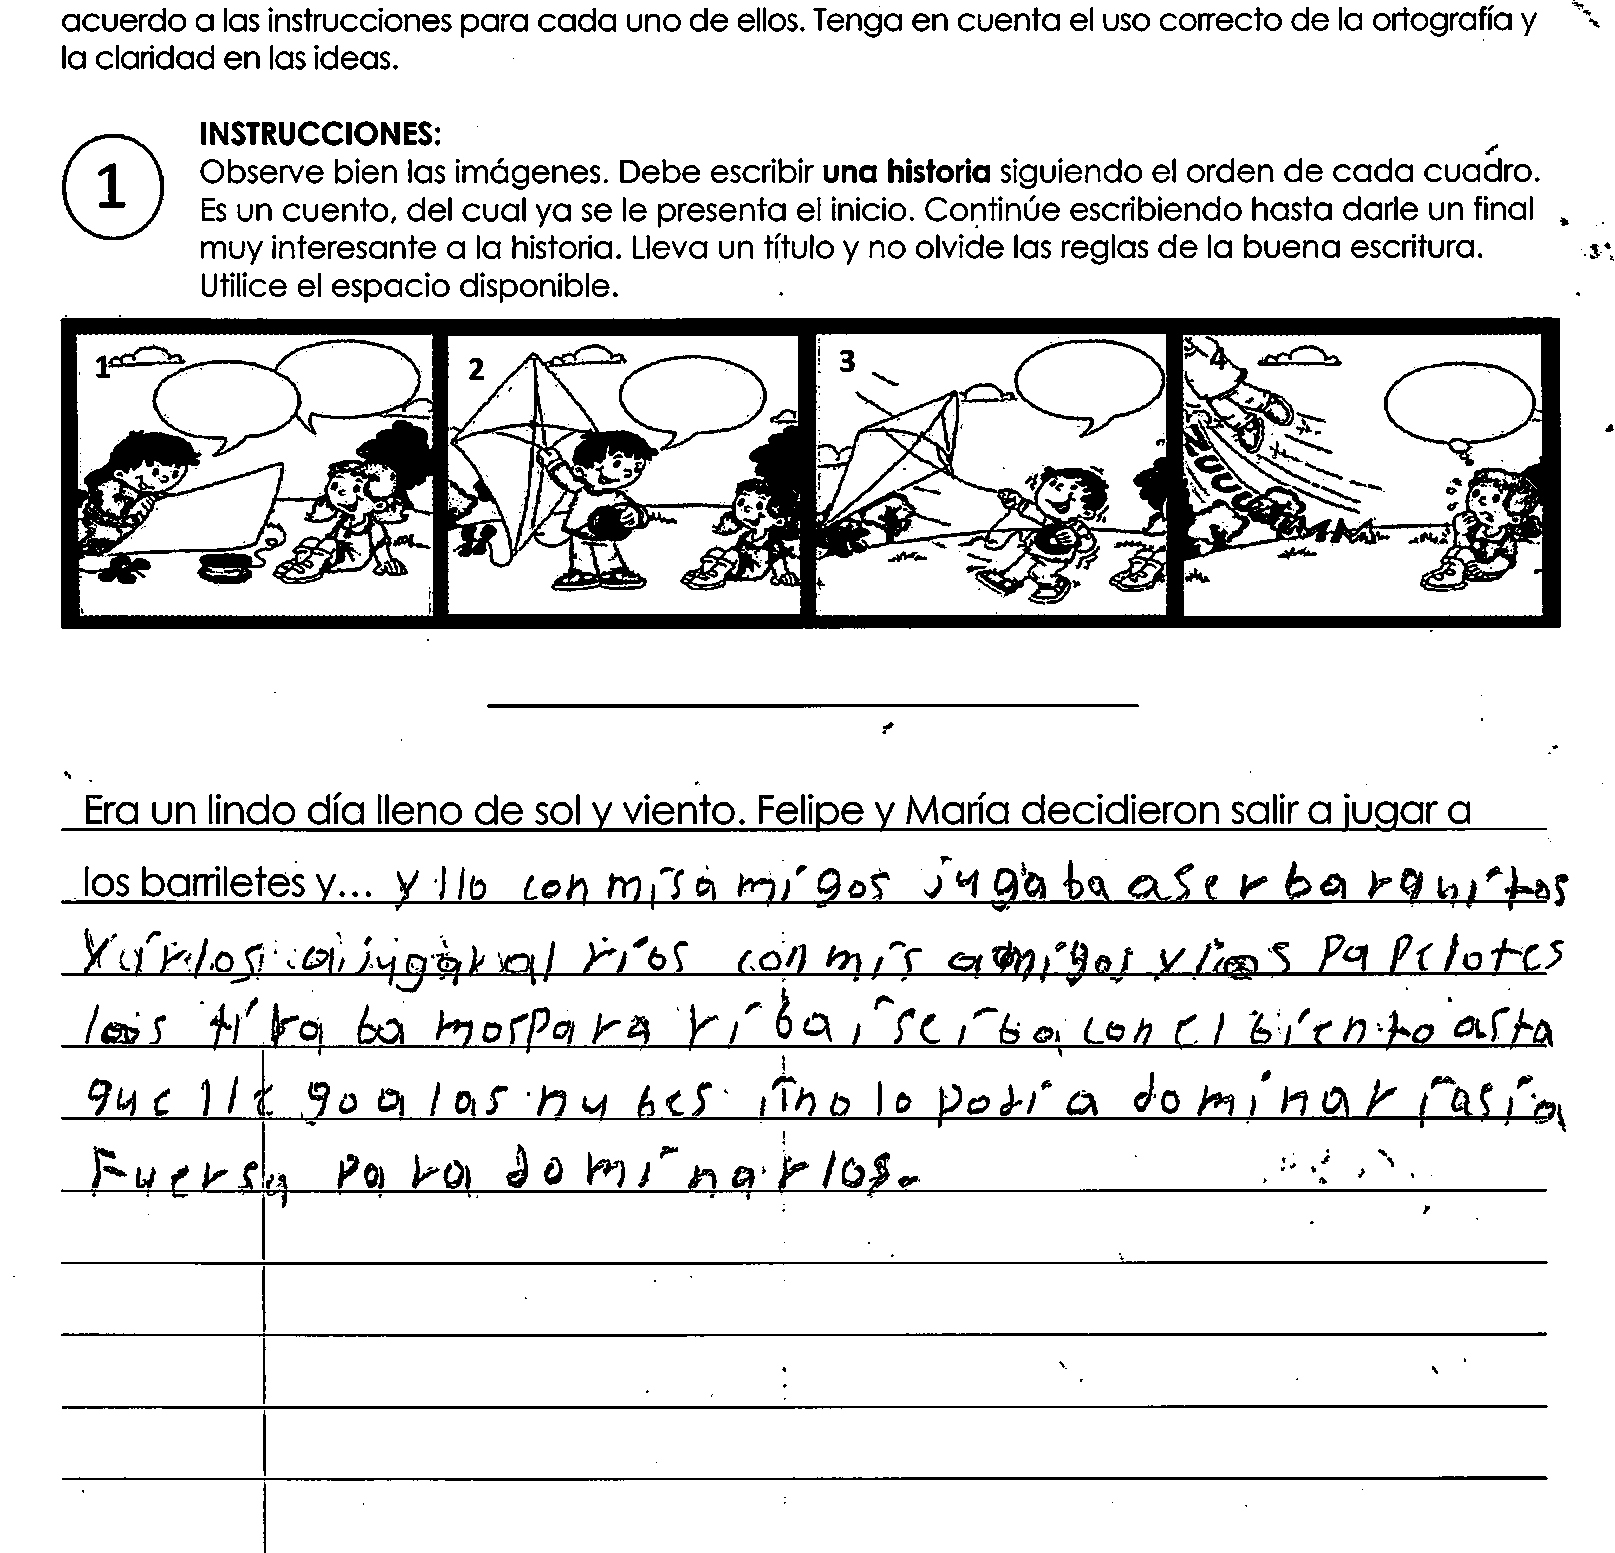 acuerdo a las instrucciones para cada uno de ellos. Tenga en cuenta el uso correcto de la ortografía y
la claridad en las ideas.
INSTRUCCIONES:
1
Observe bien las imágenes. Debe escribir una historia siguiendo el orden de cada cuadro.
Es un cuento, del cual ya se le presenta el inicio. Continúe escribiendo hasta darle un final
muy interesante a la historia. Lleva un título y no olvide las reglas de la buena escritura.
Utilice el espacio disponible.
1 2 3 4
ZUUUU
Era un lindo día lleno de sol y viento. Felipe y María decidieron salir a jugar a
los barriletes y... y llo con mis amigos jugaba aser barquitos
y irlos a jugar al ríos con mis amigos y los papelotes
los tiraba mos para riba i se iba con el biento asta
que llego a las nubes i no lo podia dominar iasia
Fuersa para dominarlos.